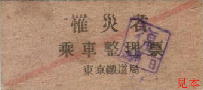 罹災者
乗車整理票
東京鐵道局
見本